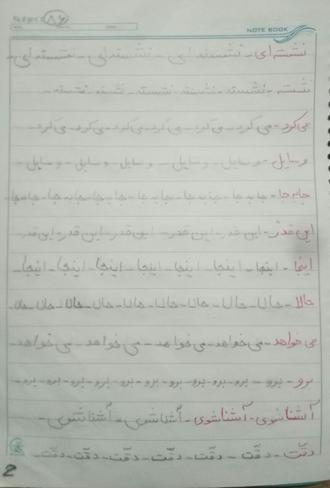 NOTE BOOK
نشسته‌ای - نشسته‌ای - نشسته‌ای - نشسته‌ای -
نشسته - نشسته - نشسته - نشسته - نشسته -
می‌کرد - می‌کرد - می‌کرد - می‌کرد - می‌کرد - می‌کرد
وسایل - وسایل - وسایل - وسایل - وسایل -
جابه‌جا - جابه‌جا - جابه‌جا - جابه‌جا - جابه‌جا - جابه‌جا
این قدر - این قدر - این قدر - این قدر - این قدر - این قدر
اینجا - اینجا - اینجا - اینجا - اینجا - اینجا - اینجا
حالا - حالا - حالا - حالا - حالا - حالا - حالا - حالا
می‌خواهد - می‌خواهد - می‌خواهد - می‌خواهد - می‌خواهد
برو - برو - برو - برو - برو - برو - برو - برو - برو -
آشنا شوی - آشنا شوی - آشنا شوی - آشنا شوی -
دقّت - دقّت - دقّت - دقّت - دقّت - دقّت - دقّت -
2